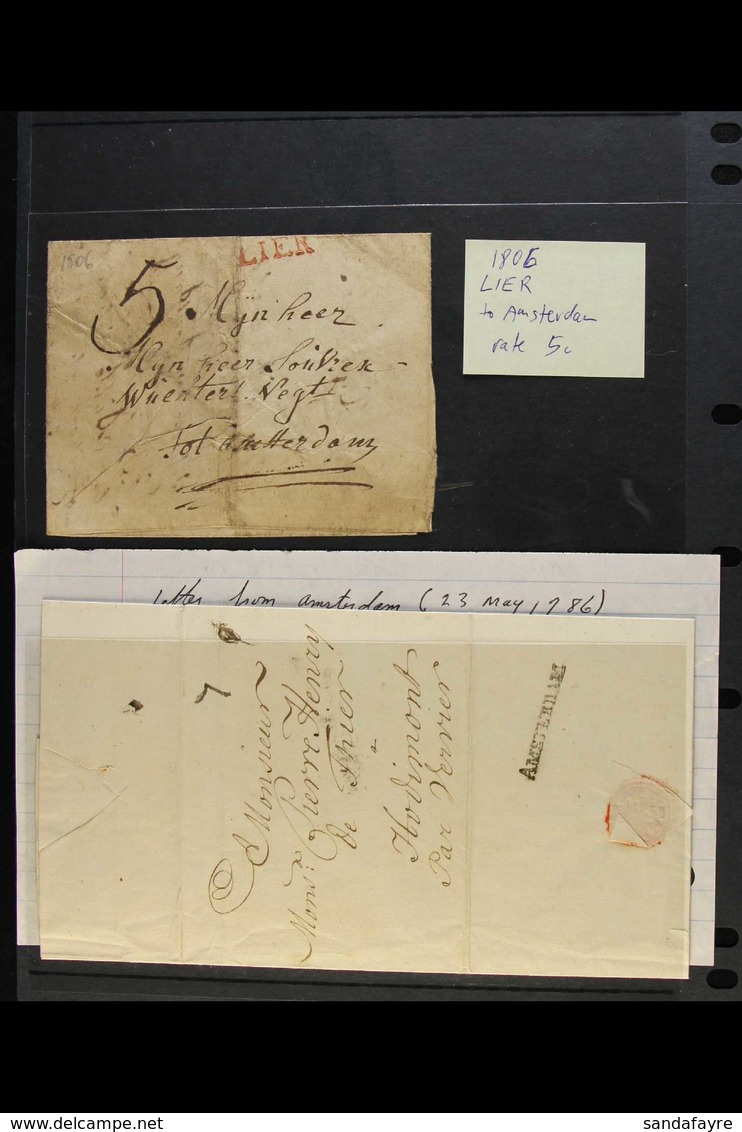 1806
LIER
5
Mijn heer
Mijn heer
Tot amsterdam
1806
LIER
to Amsterdam
rate 5c
letter from amsterdam (23 May 1786)
7
Monsieur
Mons: Pierre Henry
de Thier
a
Hodimont
Par Vervier
AMSTERDAM
delcampe.net
sandafayre